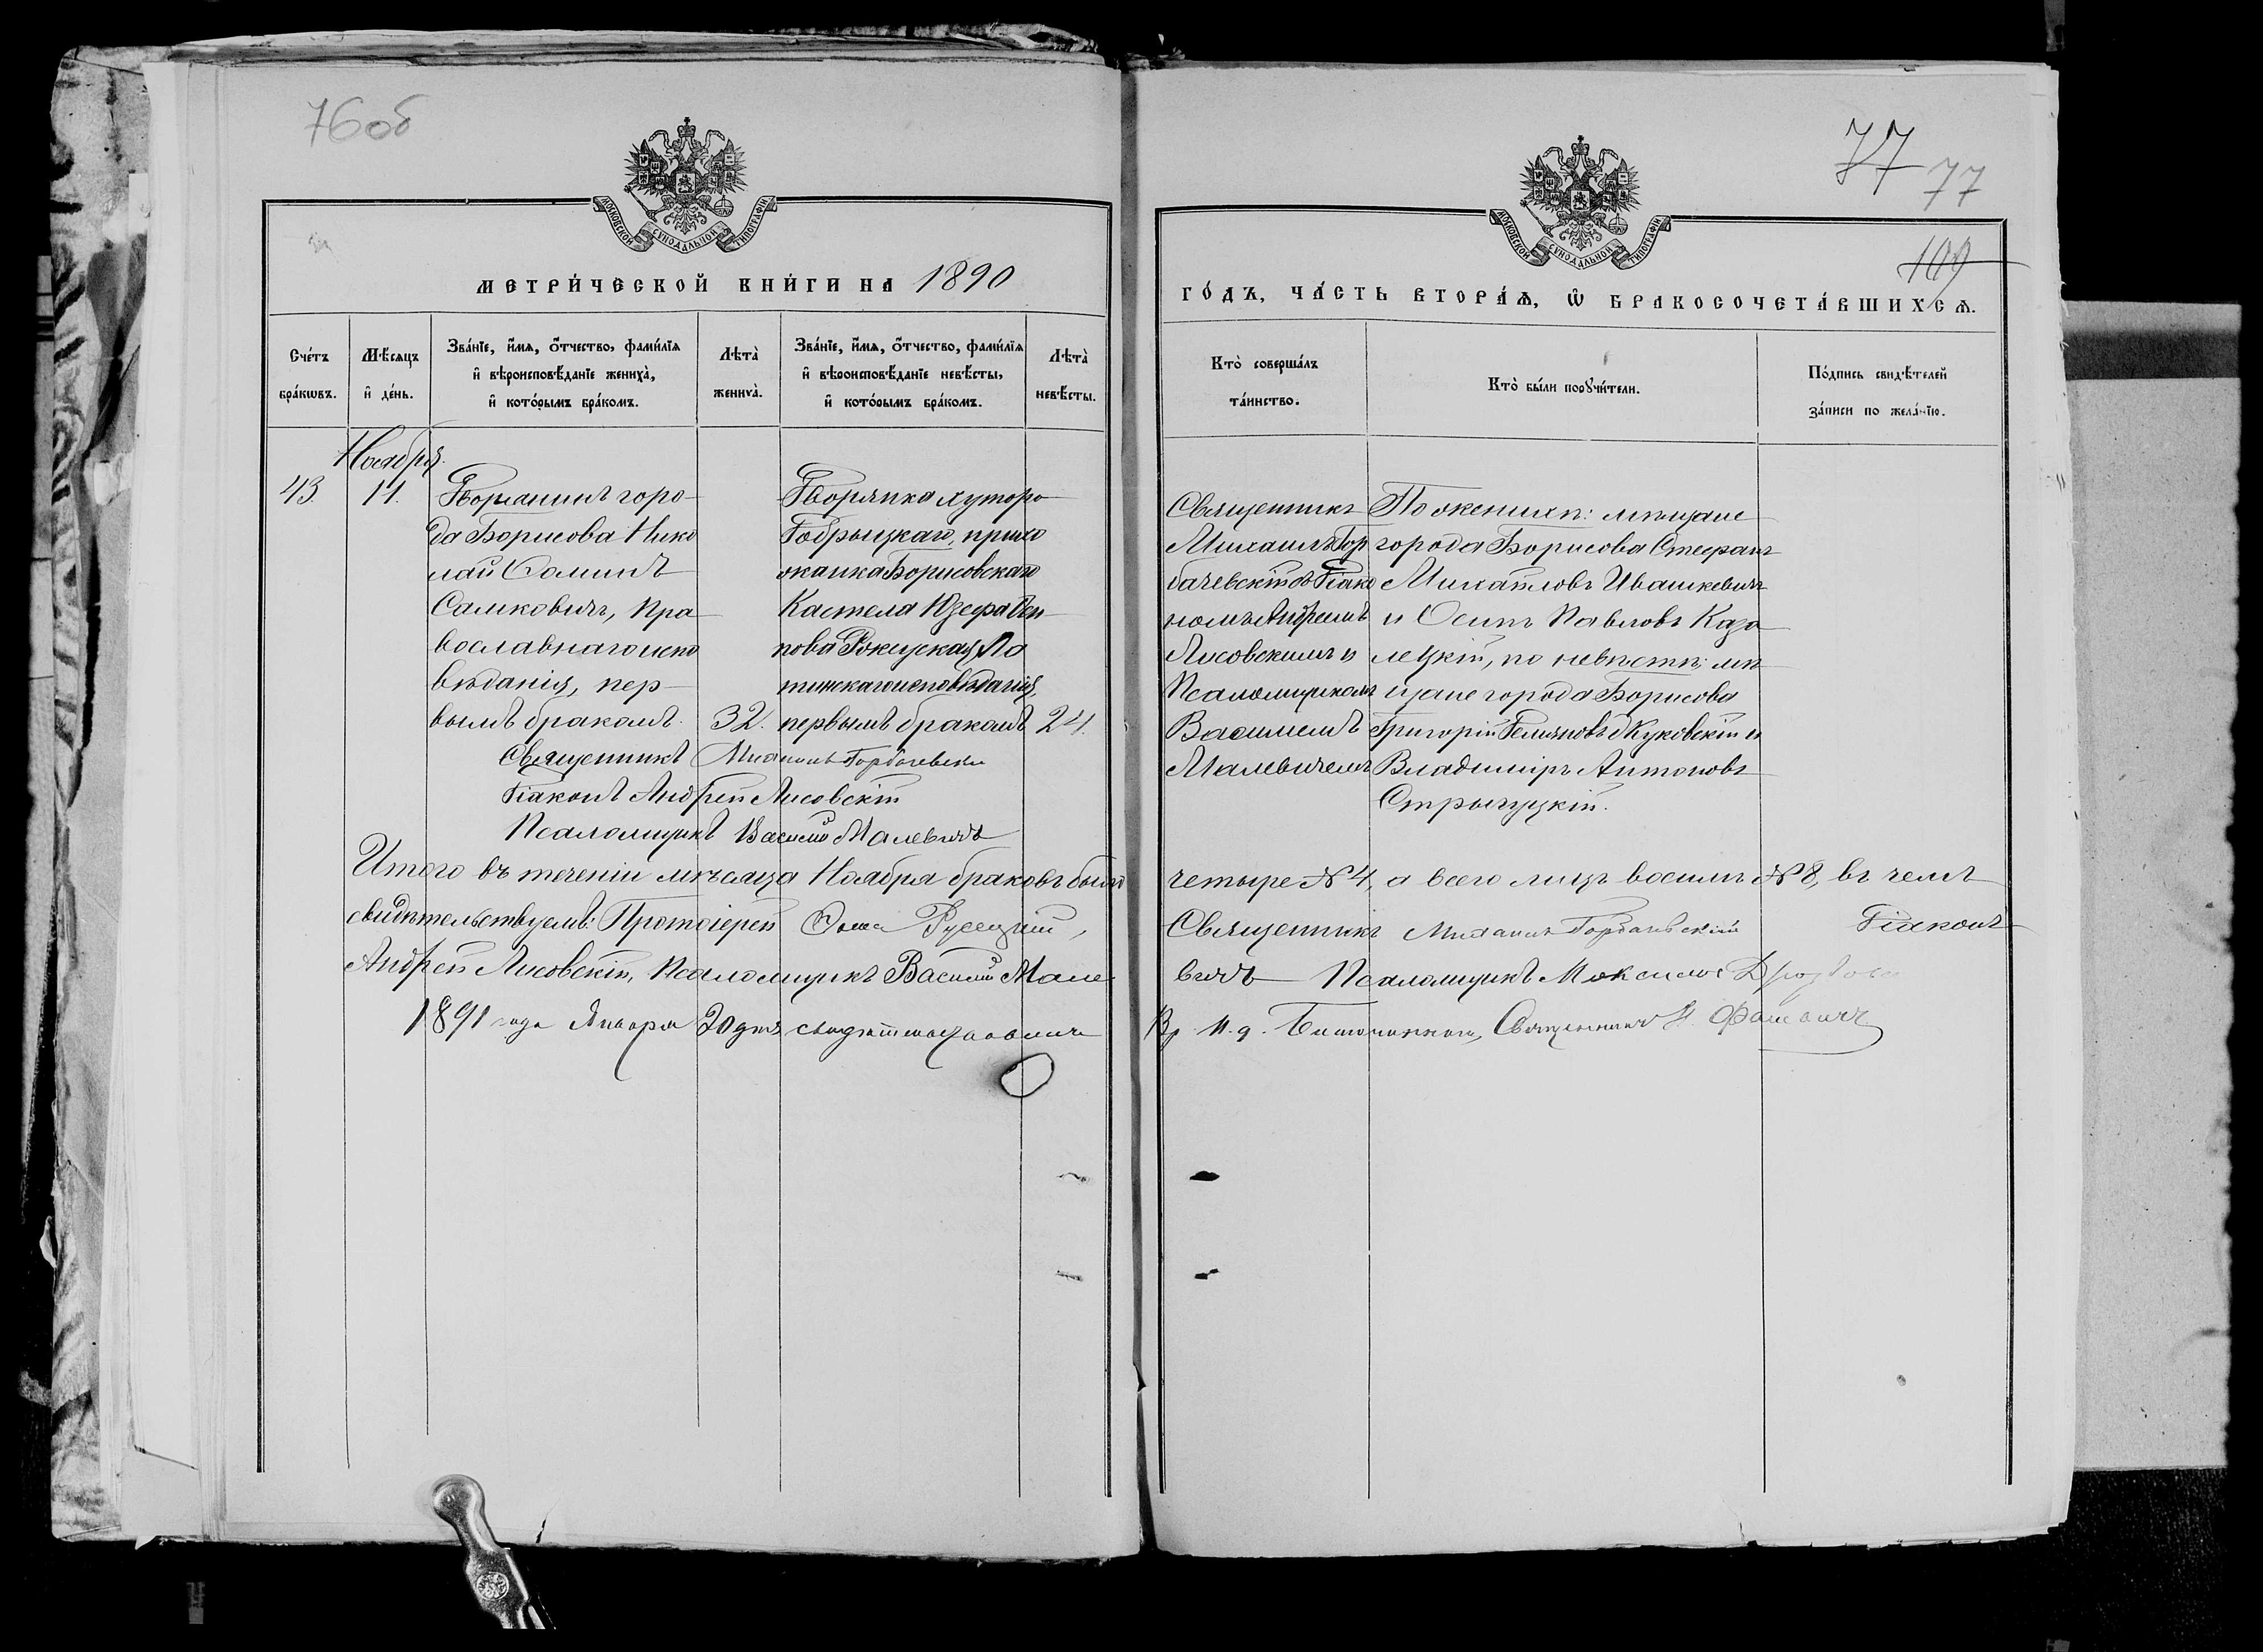 76об
МОСКОВСКОЙ СУНОДАЛЬНОЙ ТИПОГРАФІИ
МЕТРИ́ЧЕСКОЙ КНИ́ГИ НА 1890
Сче́тъ бра́кωвъ.
Мѣ́сяцъ и҆ де́нь.
Зва́нїе, и҆́мѧ, ѻ҆́тчество, фами́лїѧ и҆ вѣроисповѣ́данїе жениха̀, и҆ кото́рымъ бра́комъ.
Лѣта̀ жениха̀.
Зва́нїе, и҆́мѧ, ѻ҆́тчество, фами́лїѧ и҆ вѣроисповѣ́данїе невѣ́сты, и҆ кото́рымъ бра́комъ.
Лѣта̀ невѣ́сты.
Ноября.
43. 11.
Дворянинъ горо-
да Борисова Нико
лай Фоминъ
Самковичъ, Пра-
вославнаго испо
вѣданія, пер-
вымъ бракомъ. 32.
Дворянка хутора
прихо
жанка Борисовскаго
Костела Юзефа
Ла
тинскаго исповѣданія,
первымъ бракомъ 24.
Священникъ Михаилъ Горбачевскій
Діаконъ Андрей Лисовскій
Псаломщикъ Василій Малевичъ
Итого въ теченіи мѣсяца Ноября браковъ было
свидѣтельствуемъ: Протоіерей Ѳома Русецкій,
Андрей Лисовскій, Псаломщикъ Василій Мале-
1891 года Января 20 дня
77 77
109
МОСКОВСКОЙ СУНОДАЛЬНОЙ ТИПОГРАФІИ
ГО́ДЪ, ЧА́СТЬ ВТОРА́Ѧ, Ѡ҆ БРАКОСОЧЕТА́ВШИХСѦ.
Кто̀ соверша́лъ та́инство.
Кто̀ бы́ли порꙋчи́тели.
По́дпись свидѣ́телей за́писи по жела́нїю.
Священникъ
Михаилъ Гор
бачевскій съ Діако
номъ Андреемъ
Лисовскимъ и
Псаломщикомъ
Василіемъ
Малевичемъ
По женихѣ: мѣщане
города Борисова Стефанъ
Михайловъ Ивашкевичъ
и Осипъ Павловъ Каза
лецкій, по невѣстѣ: мѣ
щане города Борисова
Григорій Куковскій и
Владиміръ Антоновъ
Стрычуцкій.
четыре № 4, а всего лицъ восемь № 8, въ чемъ
Священникъ Михаилъ Горбачевскій Діаконъ
вичъ Псаломщикъ
Священникъ